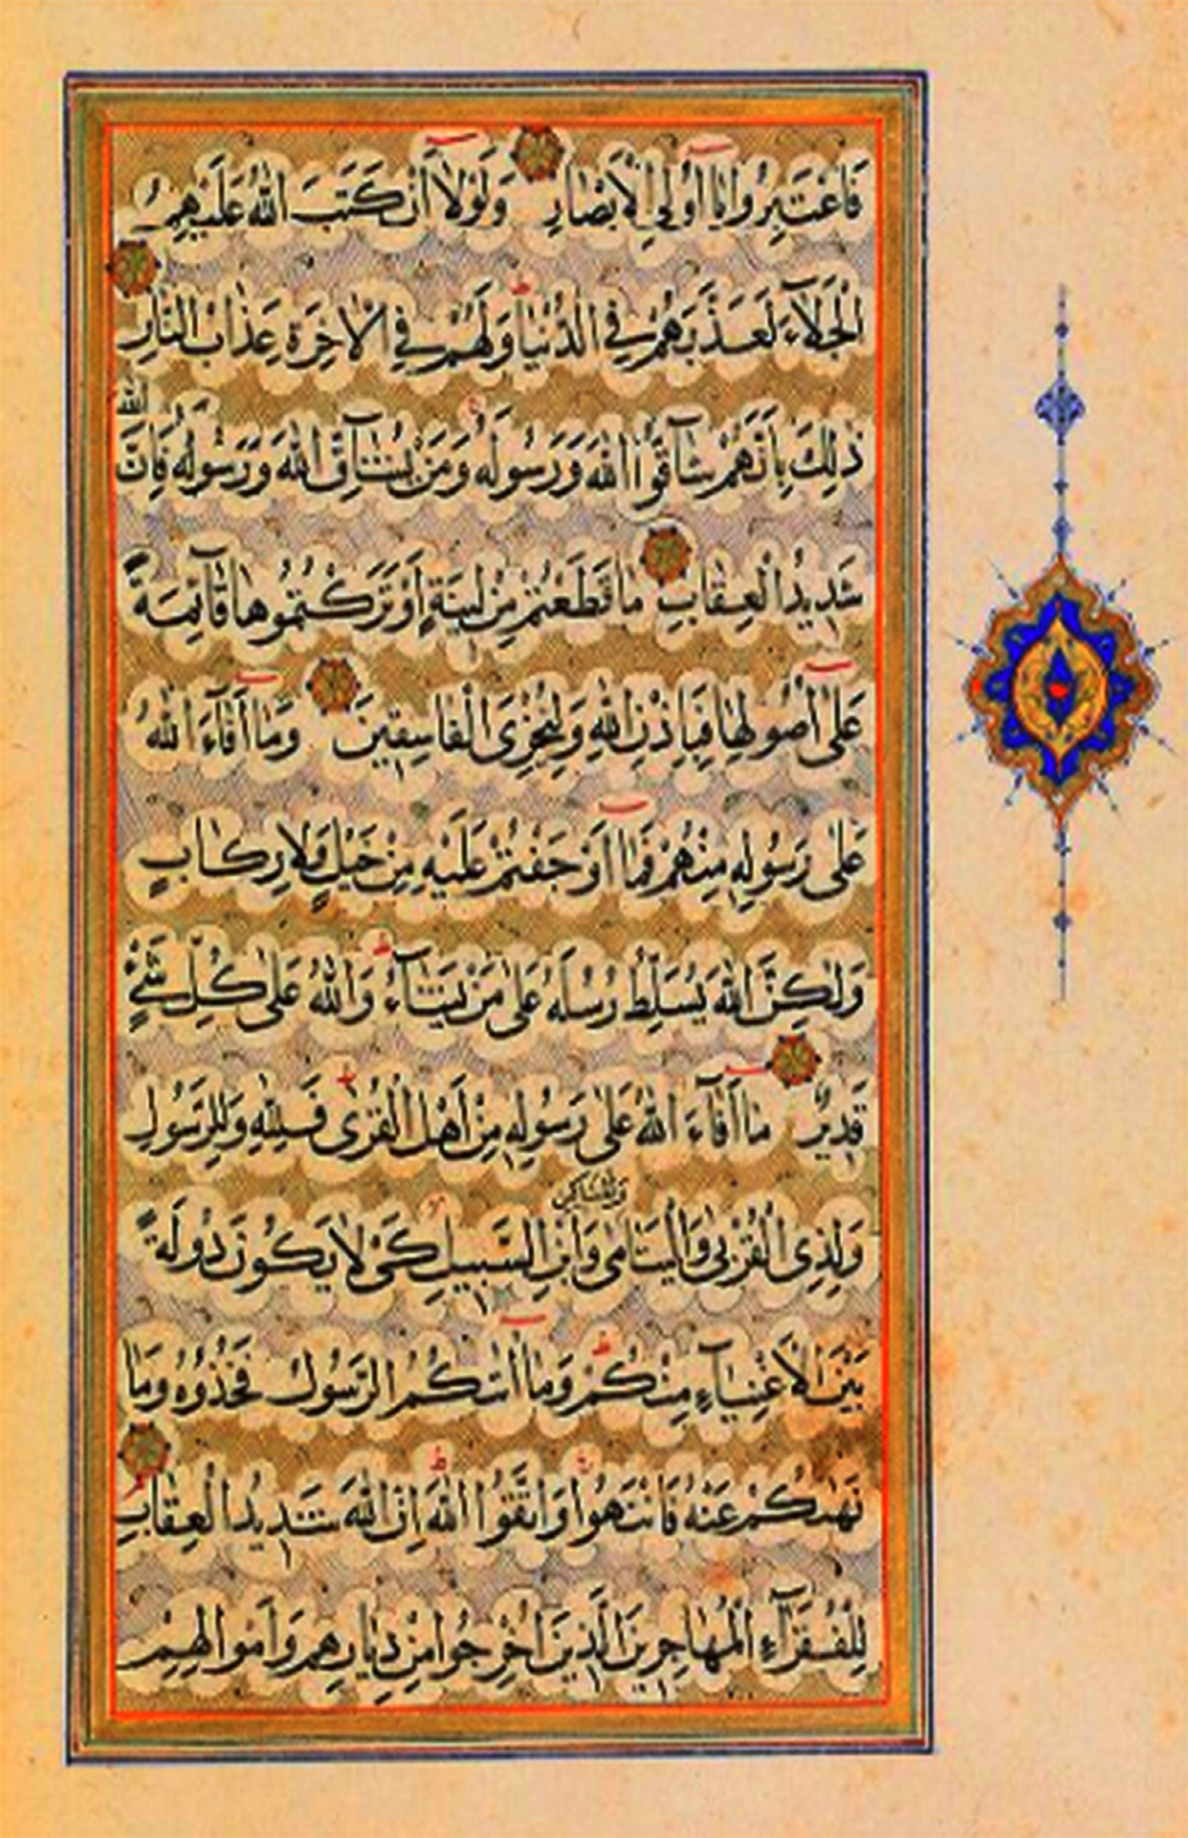 فَاعْتَبِرُوا يَا أُولِي الْأَبْصَارِ وَلَوْلَا أَنْ كَتَبَ اللَّهُ عَلَيْهِمُ
الْجَلَاءَ لَعَذَّبَهُمْ فِي الدُّنْيَا وَلَهُمْ فِي الْآخِرَةِ عَذَابُ النَّارِ
ذَلِكَ بِأَنَّهُمْ شَاقُّوا اللَّهَ وَرَسُولَهُ وَمَنْ يُشَاقِّ اللَّهَ وَرَسُولَهُ فَإِنَّ اللَّهَ
شَدِيدُ الْعِقَابِ مَا قَطَعْتُمْ مِنْ لِينَةٍ أَوْ تَرَكْتُمُوهَا قَائِمَةً
عَلَى أُصُولِهَا فَبِإِذْنِ اللَّهِ وَلِيُخْزِيَ الْفَاسِقِينَ وَمَا أَفَاءَ اللَّهُ
عَلَى رَسُولِهِ مِنْهُمْ فَمَا أَوْجَفْتُمْ عَلَيْهِ مِنْ خَيْلٍ وَلَا رِكَابٍ
وَلَكِنَّ اللَّهَ يُسَلِّطُ رُسُلَهُ عَلَى مَنْ يَشَاءُ وَاللَّهُ عَلَى كُلِّ شَيْءٍ
قَدِيرٌ مَا أَفَاءَ اللَّهُ عَلَى رَسُولِهِ مِنْ أَهْلِ الْقُرَى فَلِلَّهِ وَلِلرَّسُولِ
وَلِذِي الْقُرْبَى وَالْيَتَامَى وَالْمَسَاكِينِ وَابْنِ السَّبِيلِ كَيْ لَا يَكُونَ دُولَةً
بَيْنَ الْأَغْنِيَاءِ مِنْكُمْ وَمَا آتَاكُمُ الرَّسُولُ فَخُذُوهُ وَمَا
نَهَاكُمْ عَنْهُ فَانْتَهُوا وَاتَّقُوا اللَّهَ إِنَّ اللَّهَ شَدِيدُ الْعِقَابِ
لِلْفُقَرَاءِ الْمُهَاجِرِينَ الَّذِينَ أُخْرِجُوا مِنْ دِيَارِهِمْ وَأَمْوَالِهِمْ